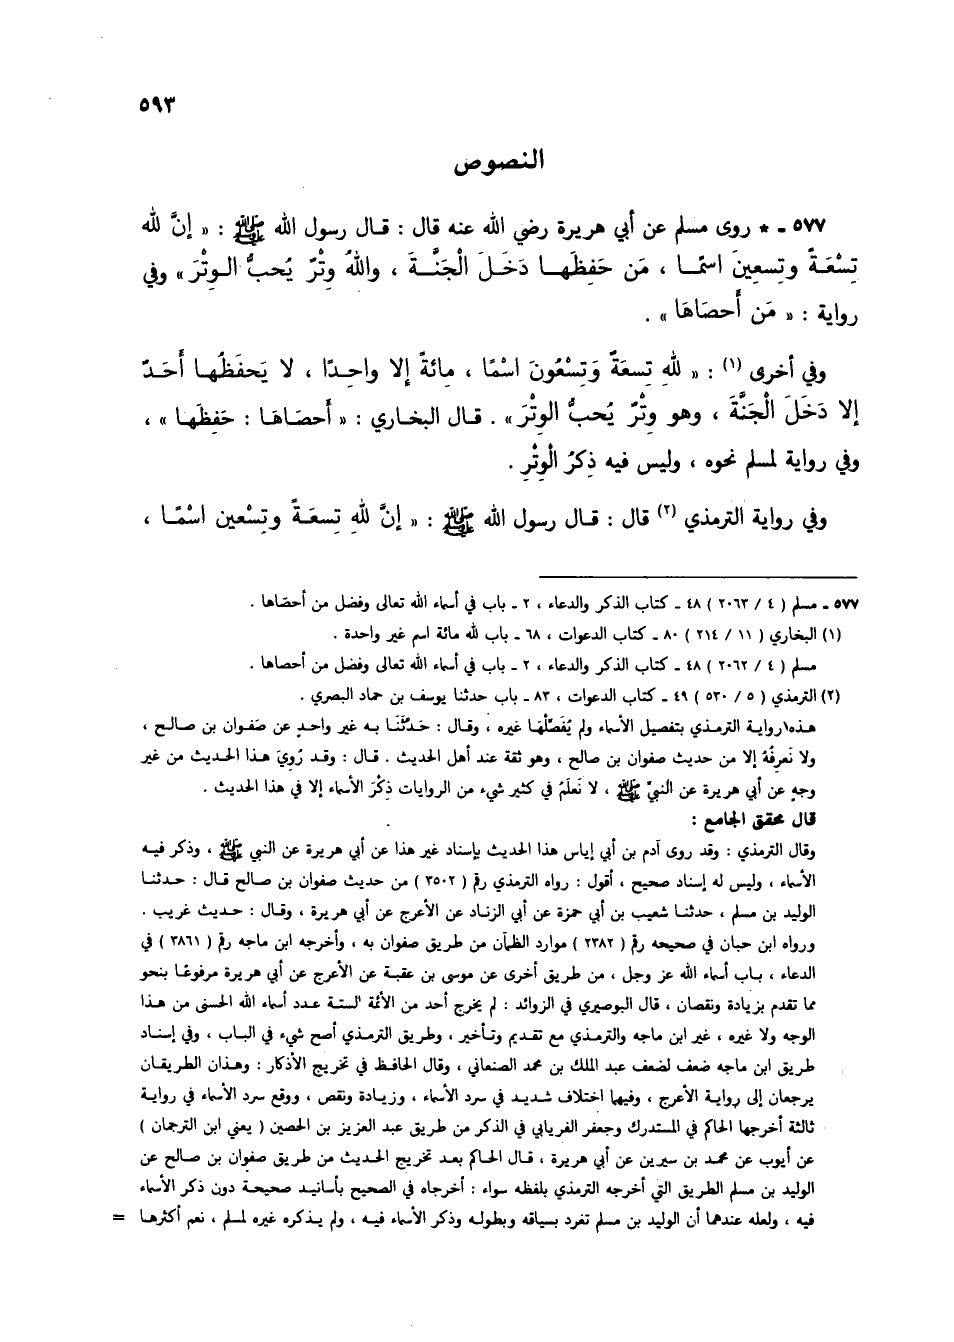 ٥٩٣
النصوص
٥٧٧ - * روى مسلم عن أبي هريرة رضي الله عنه قال : قـال رسول الله ﷺ : « إنَّ لله
تِسْعَةً وتِسعِينَ اسمًـا ، مَن حَفِظَهـا دَخَـلَ الْجَنَّـةَ ، واللهُ وِتْرٌ يُحبُّ الـوِتْرَ » وفي
رواية : « مَن أَحصَاهَا » .
وفي أخرى (١) : « لله تِسعَةٌ وَتِسْعُونَ اسْمًا ، مائةً إلا واحِـدًا ، لا يَحفَظُهـا أَحَـدٌ
إلا دَخَلَ الْجَنَّةَ ، وهو وِتْرٌ يُحبُّ الوِتْرَ » . قـال البخـاري : « أَحصَـاهَـا : حَفِظَهـا » ،
وفي رواية لمسلم نحوه ، وليس فيه ذِكرُ الْوِتْرِ .
وفي رواية الترمذي (٢) قال : قـال رسول الله ﷺ : « إنَّ للهِ تِسعَـةً وتِسْعين اسْمًـا ،
٥٧٧ - مسلم ( ٤ / ٢٠٦٣ ) ٤٨ - كتاب الذكر والدعاء ، ٢ - باب في أسماء الله تعالى وفضل من أحصاها .
(١) البخاري ( ١١ / ٢١٤ ) ٨٠ - كتاب الدعوات ، ٦٨ - باب لله مائة اسم غير واحدة .
مسلم ( ٤ / ٢٠٦٢ ) ٤٨ - كتاب الذكر والدعاء ، ٢ - باب في أسماء الله تعالى وفضل من أحصاها .
(٢) الترمذي ( ٥ / ٥٣٠ ) ٤٩ - كتاب الدعوات ، ٨٣ - باب حدثنا يوسف بن حماد البصري .
هـذه روايـة الترمـذي بتفصيل الأسماء ولم يُفَصِّلْها غيره ، وقـال : حَـدَّثَنَـا بـه غير واحـدٍ عن صَفـوان بن صـالـح ،
ولا نَعرِفُهُ إلا من حديث صفوان بن صالح ، وهو ثقة عند أهل الحديث . قـال : وقـد رُوِيَ هـذا الحديث من غير
وجهٍ عن أبي هريرة عن النبيِّ ﷺ ، لا نَعلَمُ في كثير شيء من الروايات ذِكْرَ الأسماء إلا في هذا الحديث .
قال محقق الجامع :
وقال الترمذي : وقد روى آدم بن أبي إياس هذا الحديث بإسناد غير هذا عن أبي هريرة عن النبي ﷺ ، وذكر فيـه
الأسماء ، وليس له إسناد صحيح ، أقول : رواه الترمذي رقم ( ٣٥٠٢ ) من حديث صفوان بن صالح قال : حـدثنـا
الوليد بن مسلم ، حدثنـا شعيب بن أبي حمزة عن أبي الزنـاد عن الأعرج عن أبي هريرة ، وقـال : حـديث غريب .
ورواه ابن حبان في صحيحه رقم ( ٢٣٨٢ ) موارد الظمآن من طريق صفوان به ، وأخرجه ابن ماجه رقم ( ٣٨٦١ ) في
الدعاء ، بـاب أسماء الله عز وجل ، من طريق أخرى عن موسى بن عقبـة عن الأعرج عن أبي هريرة مرفوعًـا بنحو
مما تقدم بزيادة ونقصان ، قال البوصيري في الزوائد : لم يخرج أحد من الأئمة الستة عدد أسماء الله الحسنى من هـذا
الوجه ولا غيره ، غير ابن ماجه والترمذي مع تقـديم وتـأخير ، وطريق الترمـذي أصح شيء في البـاب ، وفي إسنـاد
طريق ابن ماجه ضعف لضعف عبد الملك بن محمد الصنعاني ، وقال الحافظ في تخريج الأذكار : وهـذان الطريقـان
يرجعان إلى روايـة الأعرج ، وفيهما اختلاف شديد في سرد الأسماء ، وزيـادة ونقص ، ووقع سرد الأسماء في روايـة
ثالثة أخرجها الحاكم في المستدرك وجعفر الفريابي في الذكر من طريق عبد العزيز بن الحصين ( يعني ابن الترجمان )
عن أيوب عن محمـد بن سيرين عن أبي هريرة ، قـال الحـاكم بعـد تخريج الحـديث من طريق صفوان بن صـالح عن
الوليد بن مسلم الطريق التي أخرجه الترمذي بلفظه سواء : أخرجاه في الصحيح بأسانيـد صحيحـة دون ذكر الأسماء
فيه ، ولعله عندهما أن الوليد بن مسلم تفرد بسياقه وبطولـه وذكر الأسماء فيـه ، ولم يـذكره غيره لمسلم ، نعم أكثرهـا =